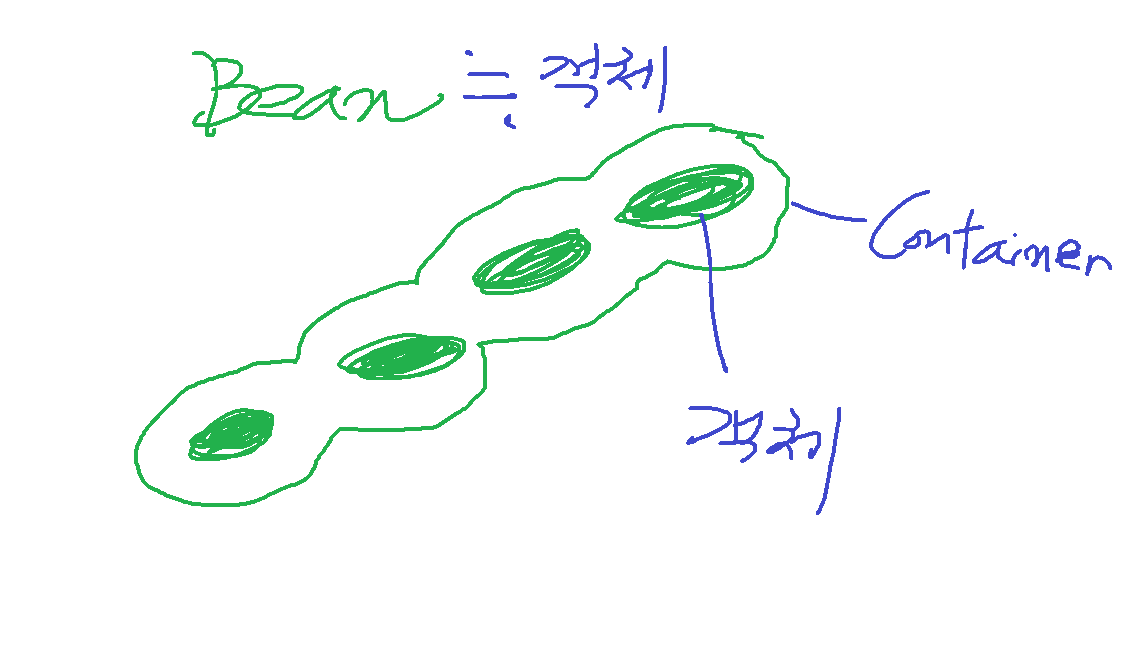 Bean ≒ 객체
Container
객체